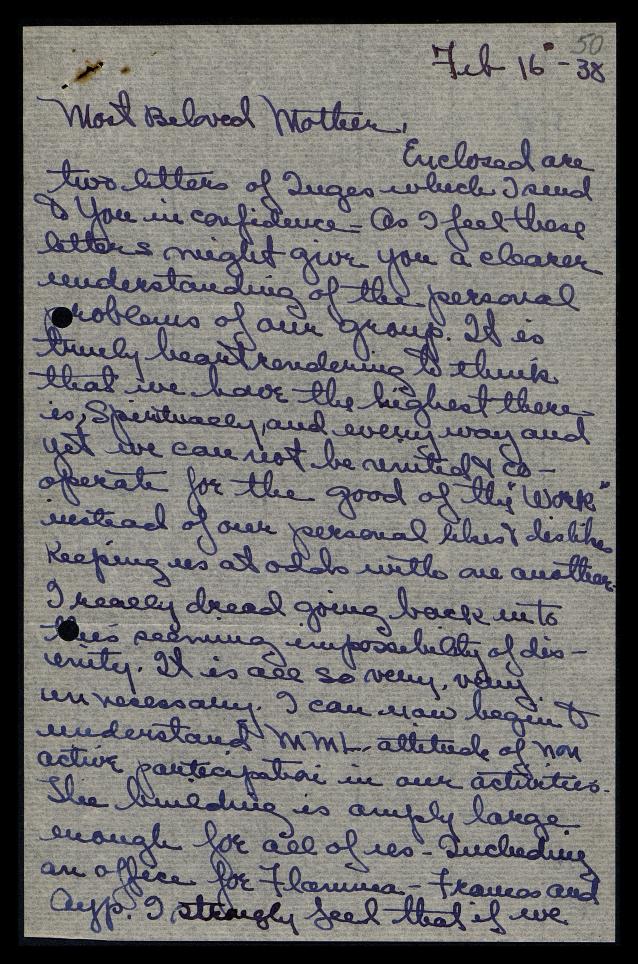 50
Feb 16 - 38
Most Beloved Mother,
Enclosed are
two letters of Inges which I send
to You in confidence - As I feel these
letters might give you a clearer
understanding of the personal
problems of our group. It is
truely heartrendering to think
that we have the highest there
is, Spiritually, and every way and
yet we can not be united & co-
operate for the good of the "Work"
instead of our personal likes & dislikes
keeping us at odds with one another.
I really dread going back into
this seeming impossibility of dis-
unity. It is all so very, very
un necessary. I can now begin to
understand MML. attitude of non
active participation in our activities.
The building is amply large
enough for all of us - Including
an office for Flamma - Frances and
Ayp. I strongly feel that if we